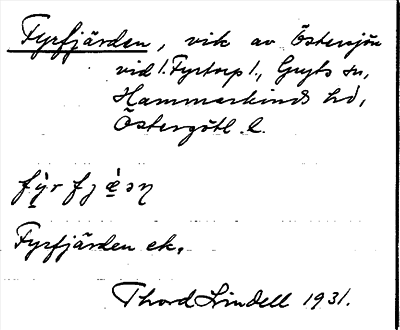 Fyrfjärden, vik av Östersjön
vid l. Fyrtorp l., Gryts sn,
Hammarkinds hd,
Östergötl. l.
Fyrfjärden ek.
Thord Lindell 1931.